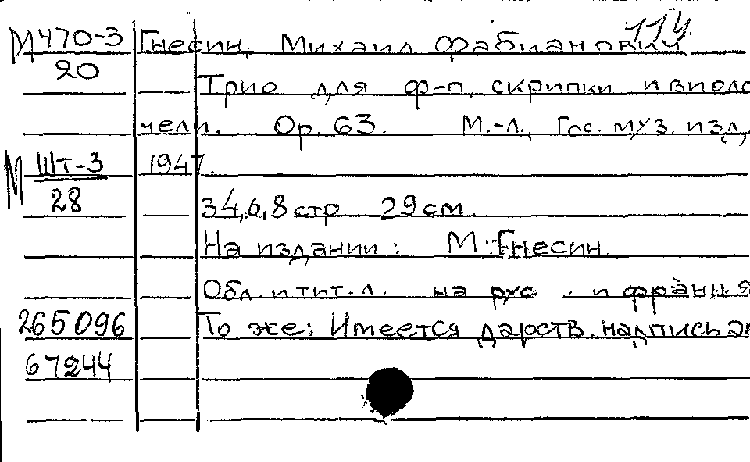 114
М 470-3 Гнесин, Михаил Фабианович
20
Трио для ф-п, скрипки и виоло
чели. Ор. 63. М.-Л., Гос. муз. изд,
М Шт-3 1947.
28 34,6,8 стр 29 см.
На издании: М. Гнесин
Обл. и тит. л. на рус. и франц. я
265096 То же: Имеется дарств. надпись
67244